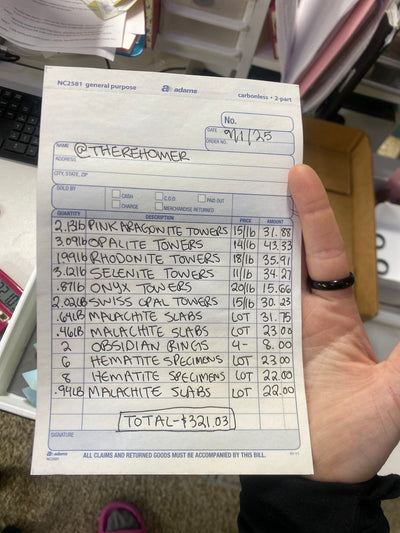 NC2581 general purpose adams carbonless • 2-part
No.
DATE 9/1/25
ORDER NO.
NAME @THEREHOMER
ADDRESS
CITY, STATE, ZIP
SOLD BY CASH C.O.D. PAID OUT
CHARGE MERCHANDISE RETURNED
QUANTITY DESCRIPTION PRICE AMOUNT
2.13lb PINK ARAGONITE TOWERS 15/lb 31.88
3.09lb OPALITE TOWERS 14/lb 43.33
1.99lb RHODONITE TOWERS 18/lb 35.91
3.12lb SELENITE TOWERS 11/lb 34.27
.87lb ONYX TOWERS 20/lb 15.66
2.02LB SWISS OPAL TOWERS 15/lb 30.23
.64LB MALACHITE SLABS LOT 31.75
.46LB MALACHITE SLABS LOT 23.00
2 OBSIDIAN RINGS 4- 8.00
6 HEMATITE SPECIMENS LOT 23.00
8 HEMATITE SPECIMENS LOT 22.00
.94LB MALACHITE SLABS LOT 22.00
TOTAL-$321.03
SIGNATURE
adams
NC2581
ALL CLAIMS AND RETURNED GOODS MUST BE ACCOMPANIED BY THIS BILL.